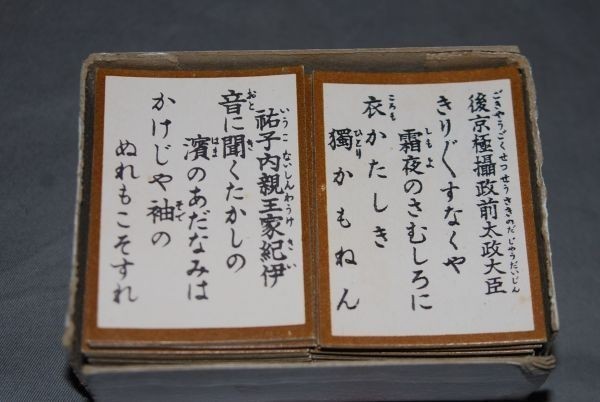 後京極攝政前太政大臣
ごきやうごくせつせうさきのだじやうだいじん
きり〲すなくや
霜夜のさむしろに
しもよ
衣かたしき
ころも
獨かもねん
ひとり
祐子内親王家紀伊
いうこないしんわうけきい
音に聞くたかしの
おと き
濱のあだなみは
はま
かけじや袖の
そで
ぬれもこそすれ